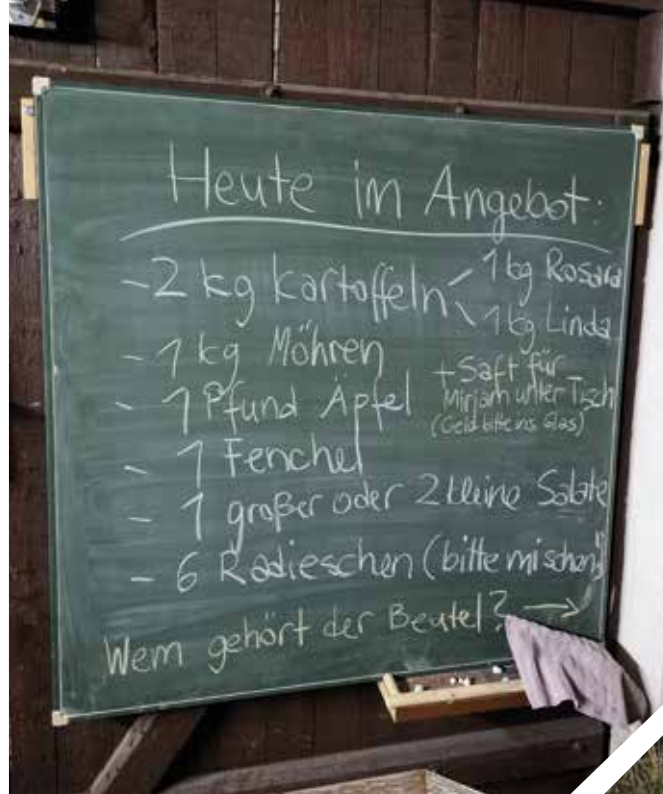 Heute im Angebot:
- 2 kg Kartoffeln
1 kg Rosara
1 kg Linda
- 1 kg Möhren
- 1 Pfund Äpfel
+ Saft für
Mirjam unter Tisch
(Geld bitte ins Glas)
- 1 Fenchel
- 1 großer oder 2 kleine Salate
- 6 Radieschen (bitte mischen!)
Wem gehört der Beutel? →